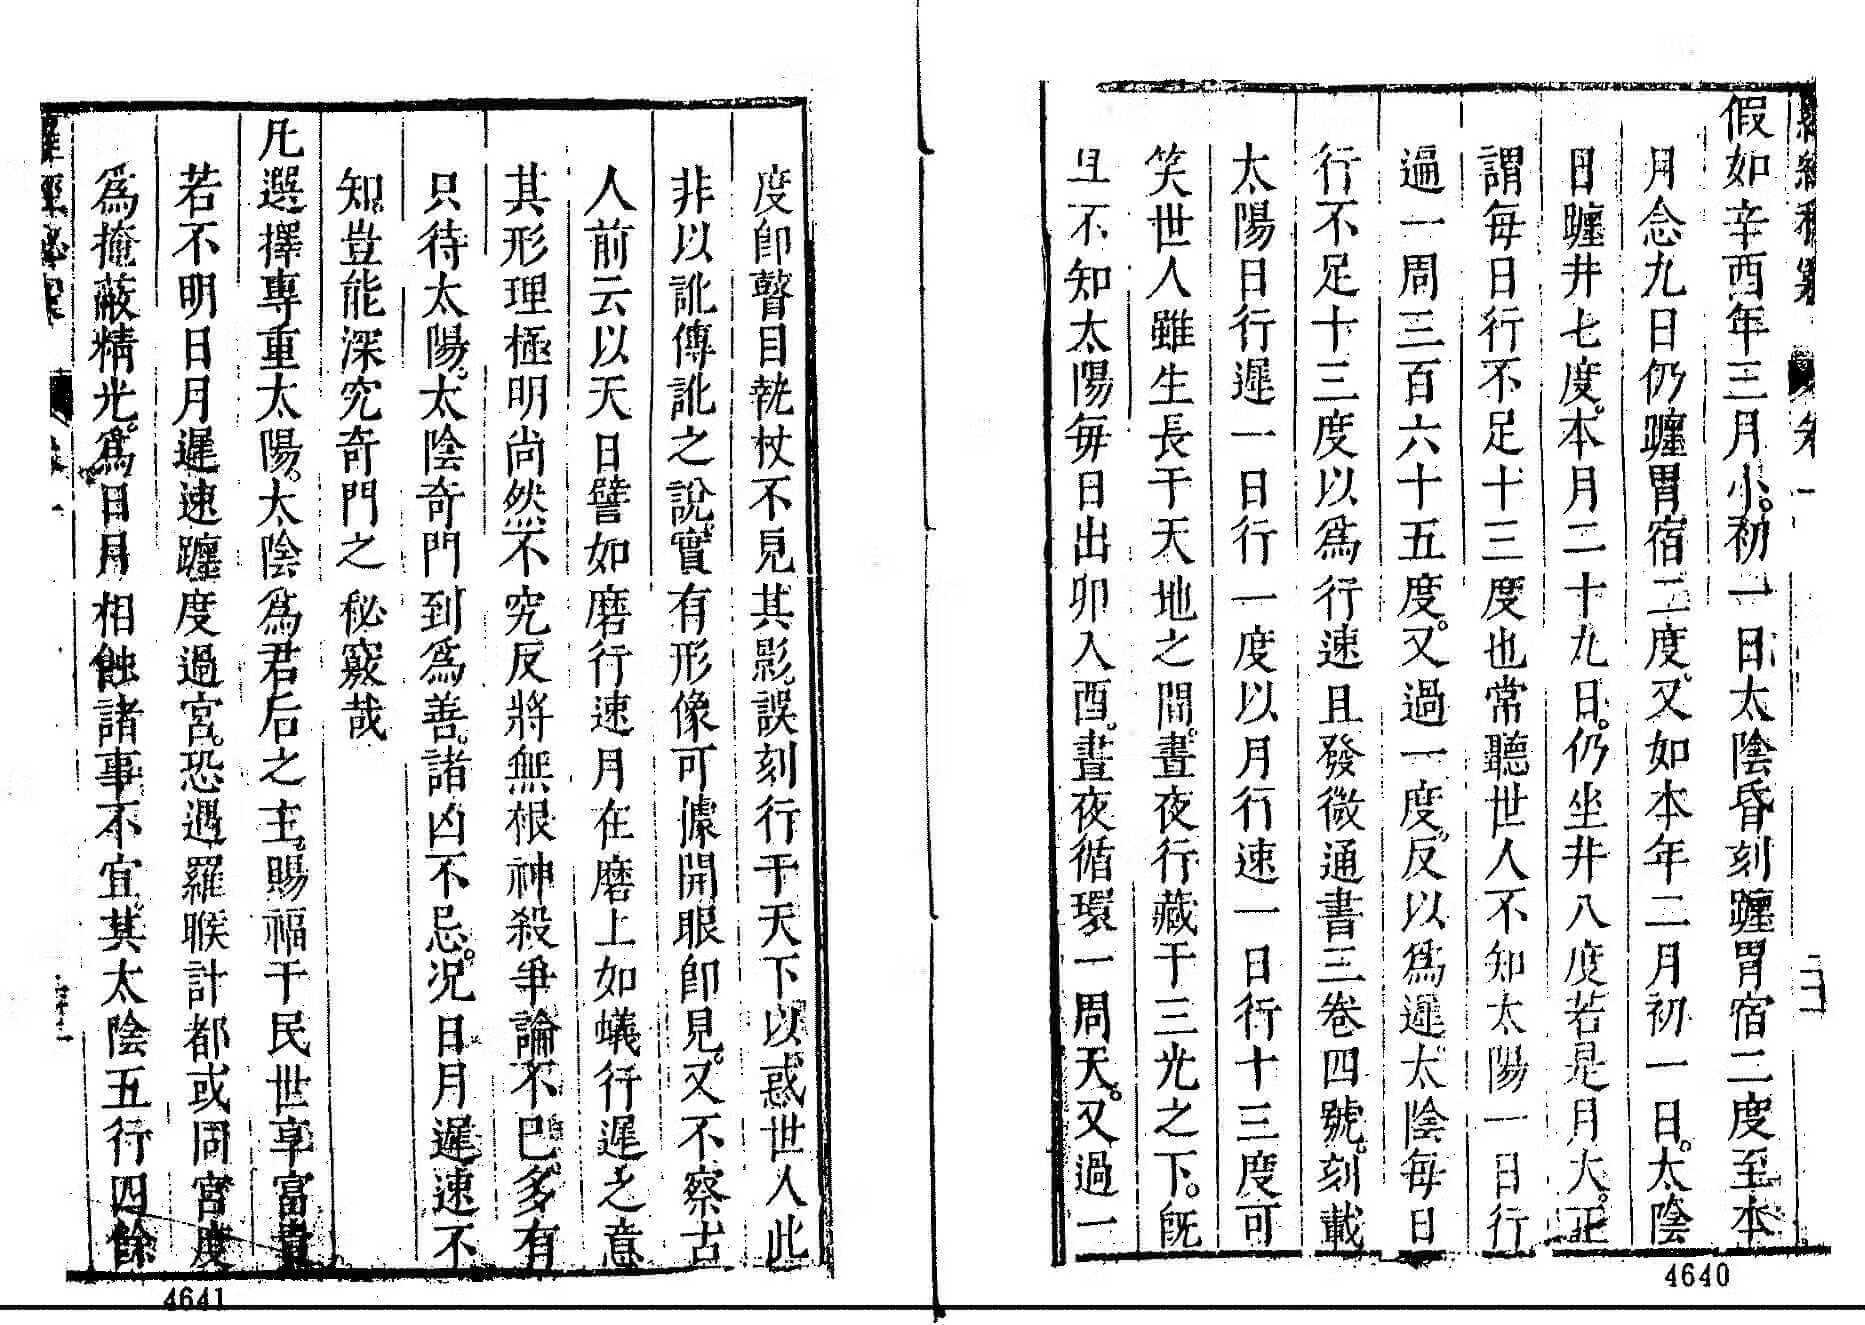 假如辛酉年三月小。初一日太陰昏刻躔胃宿二度至本
月念九日仍躔胃宿二度。又如本年二月初一日。太陰
日躔井七度。本月二十九日。仍坐井八度若是月大。正
謂每日行不足十三度也常聽世人不知太陽一日行
遍一周三百六十五度。又過一度。反以為遲太陰每日
行不足十三度以為行速且發微通書三卷四號。刻載
太陽日行遲一日行一度以月行速一日行十三度可
笑世人雖生長于天地之間。晝夜行藏于三光之下。既
且不知太陽每日出卯入酉。晝夜循環一周天。又過一
4640
度卽瞽目執杖不見其影。誤刻行于天下以惑世人此
非以訛傳訛之說。實有形像可據開眼卽見。又不察古
人前云以天日譬如磨行速月在磨上如蟻行遲之意
其形理極明尚然不究反將無根神殺爭論不巳多有
只待太陽。太陰奇門到為善。諸凶不忌。況日月遲速不
知。豈能深究奇門之秘竅哉
凡選擇專重太陽。太陰為君后之主。賜福于民世享富貴
若不明日月遲速躔度過宮。恐遇羅睺計都或同宮度
為掩蔽精光。為日月相蝕諸事不宜。其太陰五行四餘
羅經秘竅
4641